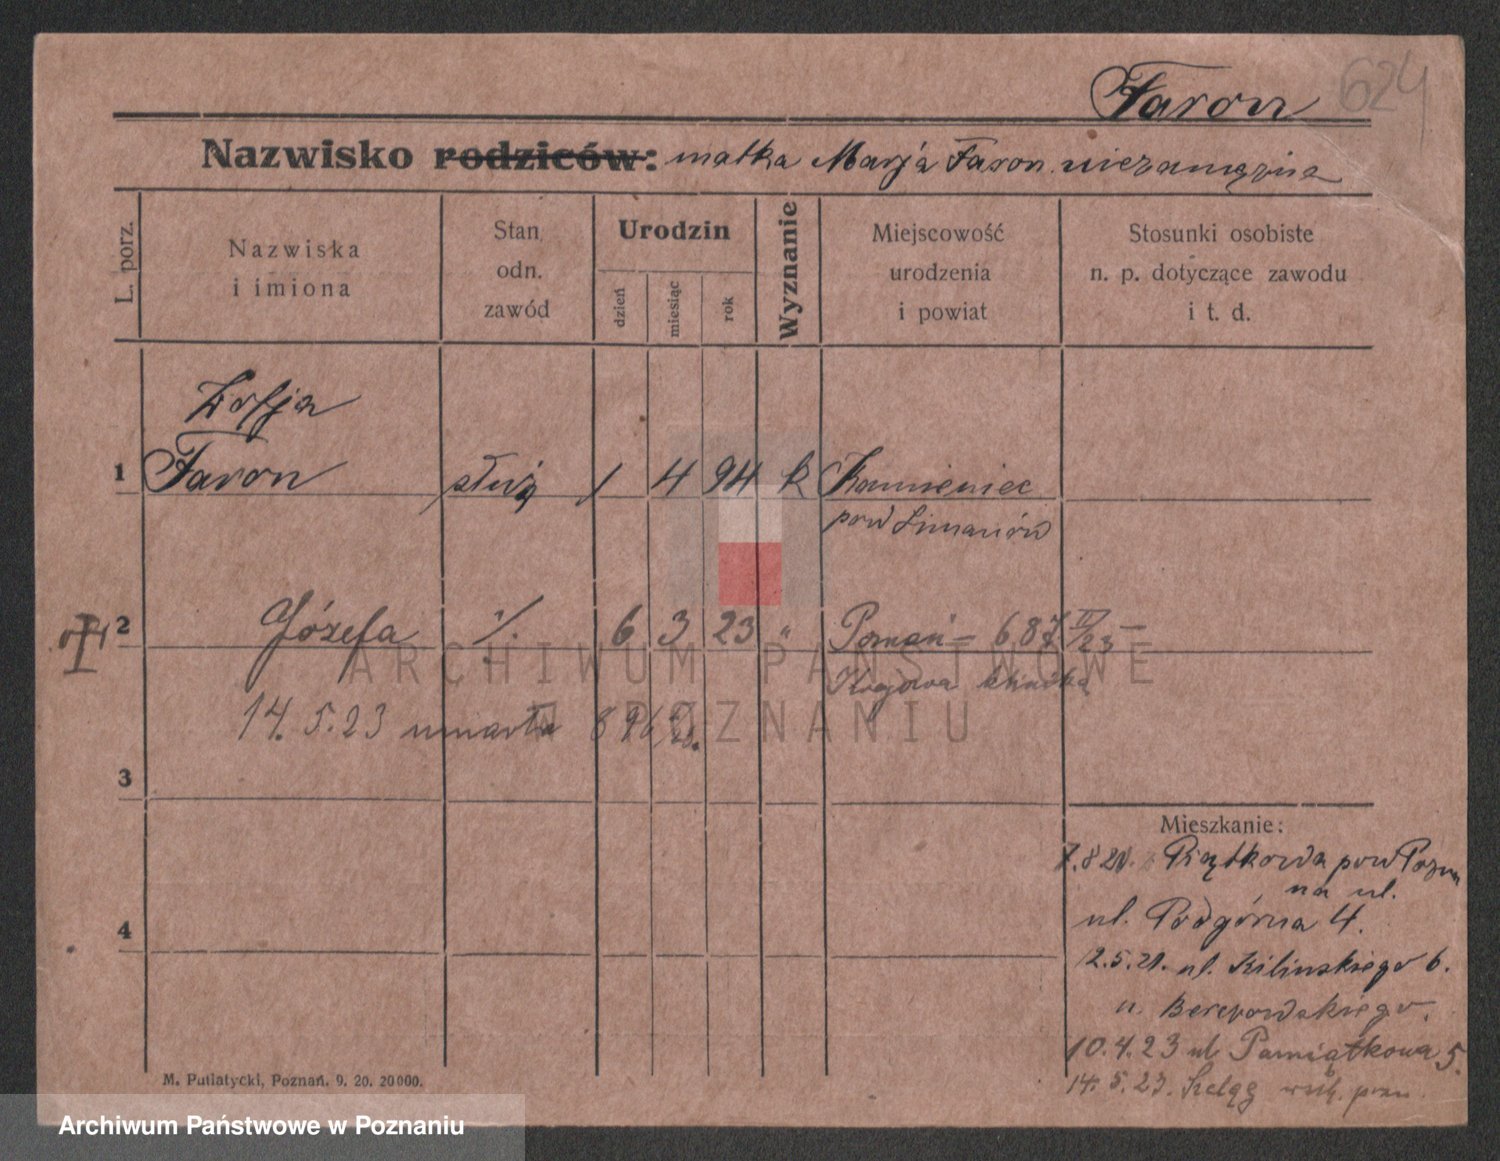 Faron 624
Nazwisko rodziców: matka Marja Faron niezamężna
L. porz.
Nazwiska
i imiona
Stan
odn.
zawód
Urodzin
dzień
miesiąc
rok
Wyznanie
Miejscowość
urodzenia
i powiat
Stosunki osobiste
n. p. dotyczące zawodu
i t. d.
Zofja
1 Faron służ 1 4 94 k Kamieniec
pow Limanów
2 Józefa 6 3 23 " Poznań
14. 5. 23 umarła
3
Mieszkanie:
7.8 20. Piątkowa pow Pozn
na ul.
4
ul. Podgórna 4.
12.5.21. ul. Kilinskiego 6.
u.
10.4.23 ul. Pamiątkowa 5.
14. 5. 23. Szeląg
M. Putiatycki, Poznań. 9. 20. 20000.
ARCHIWUM PAŃSTWOWE
W POZNANIU
Archiwum Państwowe w Poznaniu